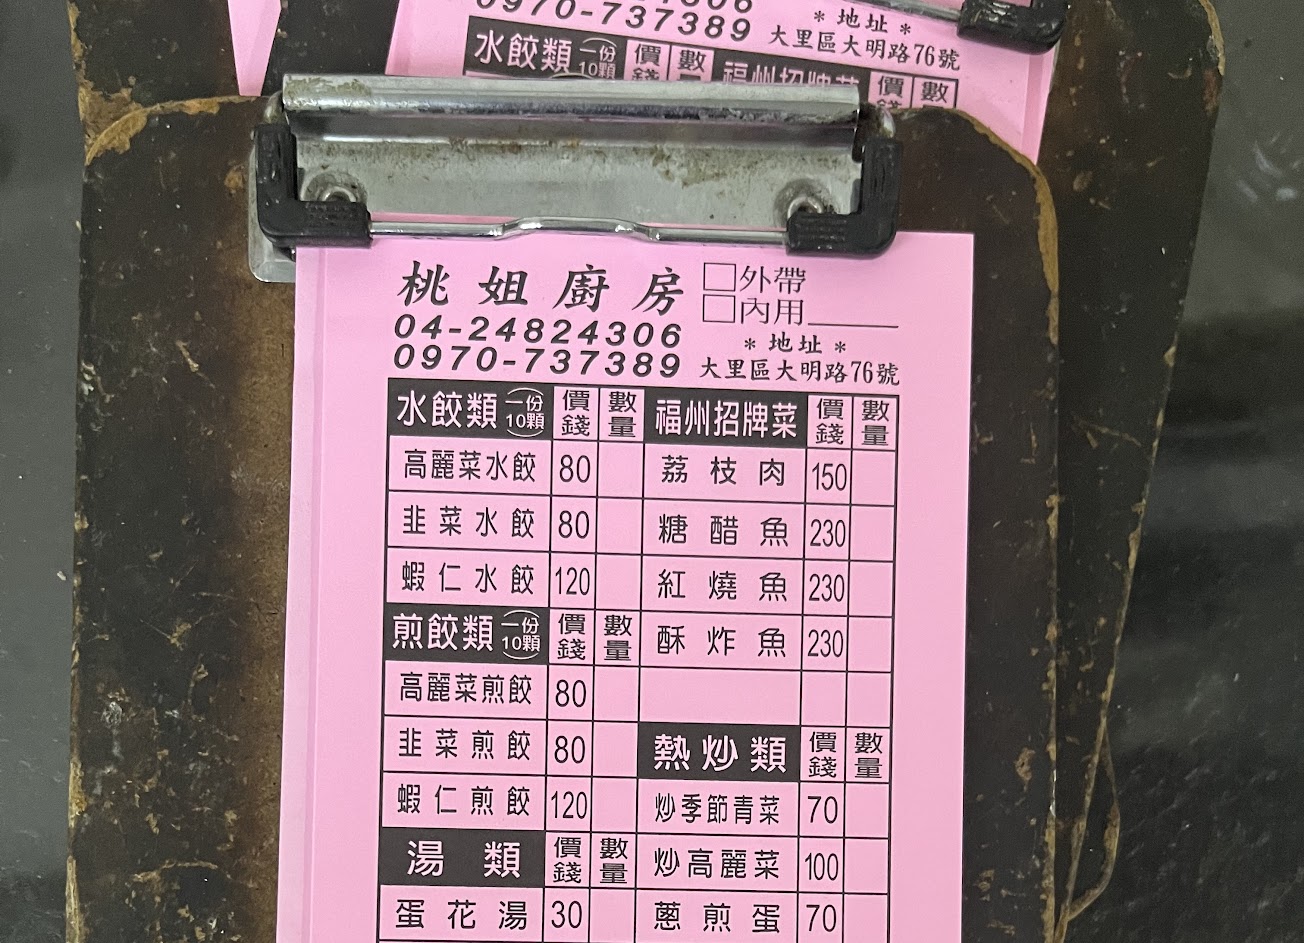 0970-737389
* 地址 *
大里區大明路76號
水餃類 一份10顆 價錢 數量 福州招牌菜 價錢 數
桃姐廚房
04-24824306
0970-737389
□外帶
□內用______
* 地址 *
大里區大明路76號
水餃類 一份10顆 價錢 數量
高麗菜水餃 80
韭菜水餃 80
蝦仁水餃 120
煎餃類 一份10顆 價錢 數量
高麗菜煎餃 80
韭菜煎餃 80
蝦仁煎餃 120
湯類 價錢 數量
蛋花湯 30
福州招牌菜 價錢 數量
荔枝肉 150
糖醋魚 230
紅燒魚 230
酥炸魚 230
熱炒類 價錢 數量
炒季節青菜 70
炒高麗菜 100
蔥煎蛋 70